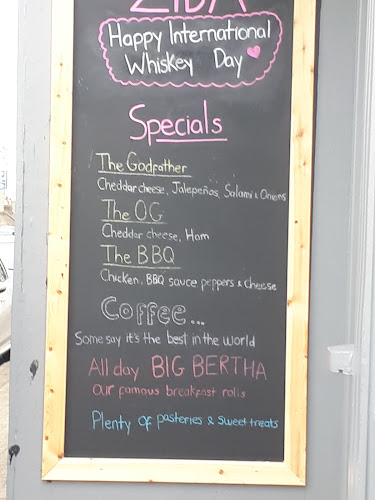 ZIBA
Happy International
Whiskey Day
Specials
The Godfather
Cheddar cheese, Jalepeños, Salami & Onions
The OG
Cheddar cheese, Ham
The BBQ
Chicken, BBQ sauce peppers & cheese
Coffee...
Some say it's the best in the world
All day BIG BERTHA
our famous breakfast rolls
Plenty of pasteries & sweet treats